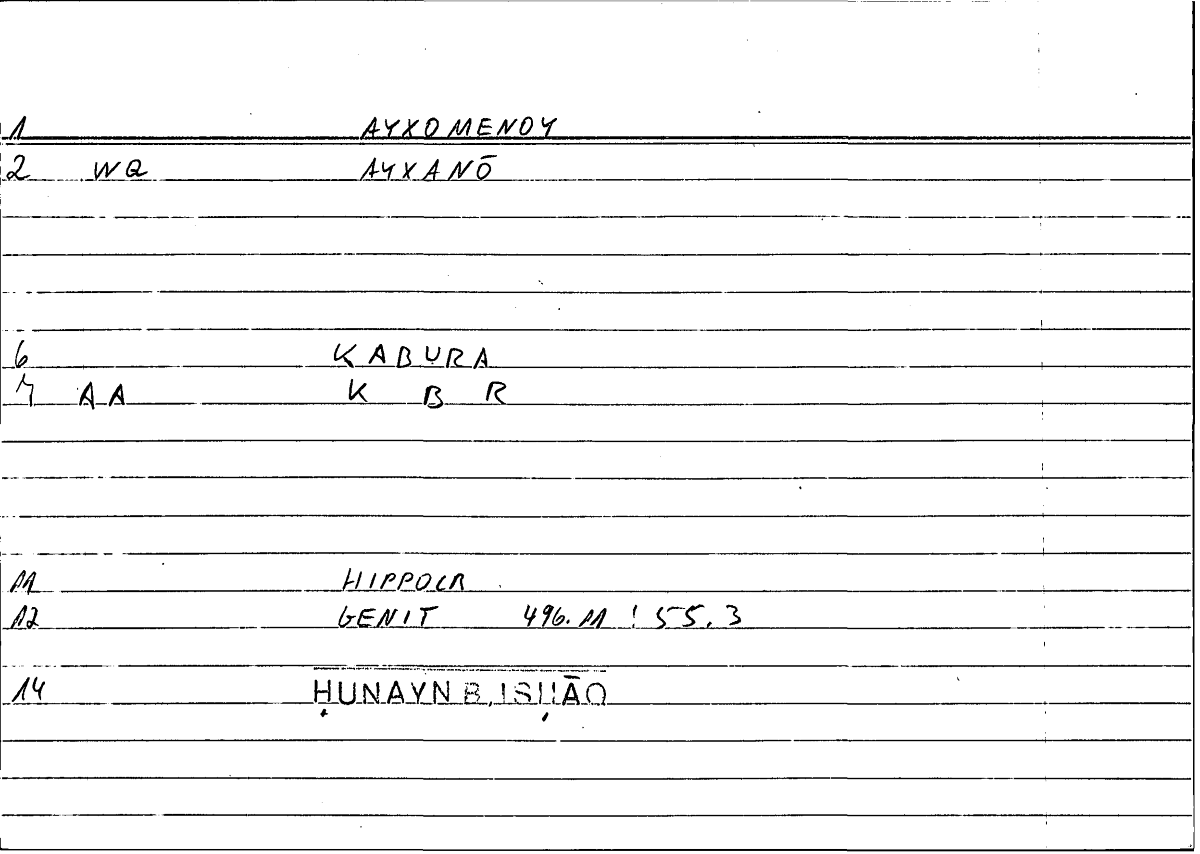 1 AYXOMENOY
2 WQ AYXANŌ
6 KABURA
7 AA K B R
11 HIPPOCR
12 GENIT 496.11 ! 55.3
14 ḤUNAYN B. ISḤĀQ